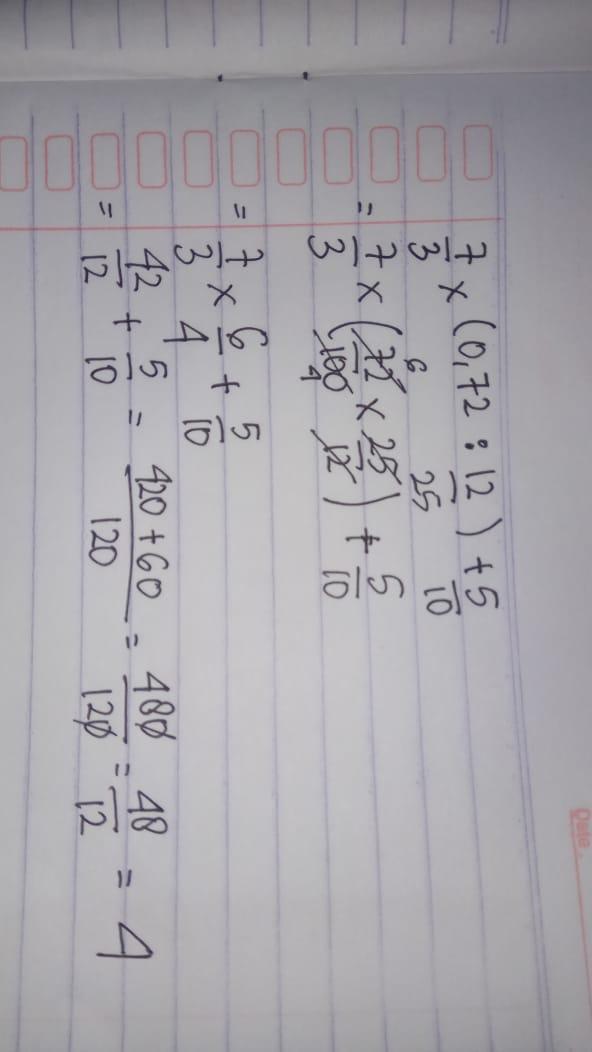 Date.
7/3 × (0,72 : 12/25) + 5/10
= 7/3 × (72/100 × 25/12) + 5/10
6
4
= 7/3 × 6/4 + 5/10
= 42/12 + 5/10 = 420+60/120 = 480/120 = 48/12 = 4